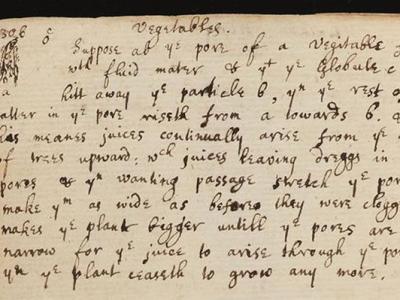 Vegetables.
Suppose ab yͤ pore of a Vegitable
wᵗʰ fluid mater & yᵗ yͤ Globule c
hitt away yͤ particle b, yⁿ yͤ rest of
atter in yͤ pore riseth from a towards b. &
his meanes juices continually arise from yͤ
of trees upward: wᶜʰ juices leaving dreggs in
pores & yⁿ wanting passage stretch yͤ por
make yᵐ as wide as before they were clogg
makes yͤ plant bigger untill yͤ pores are
narrow for yͤ juice to arise through yͤ po
yⁿ yͤ plant ceaseth to grow any more.